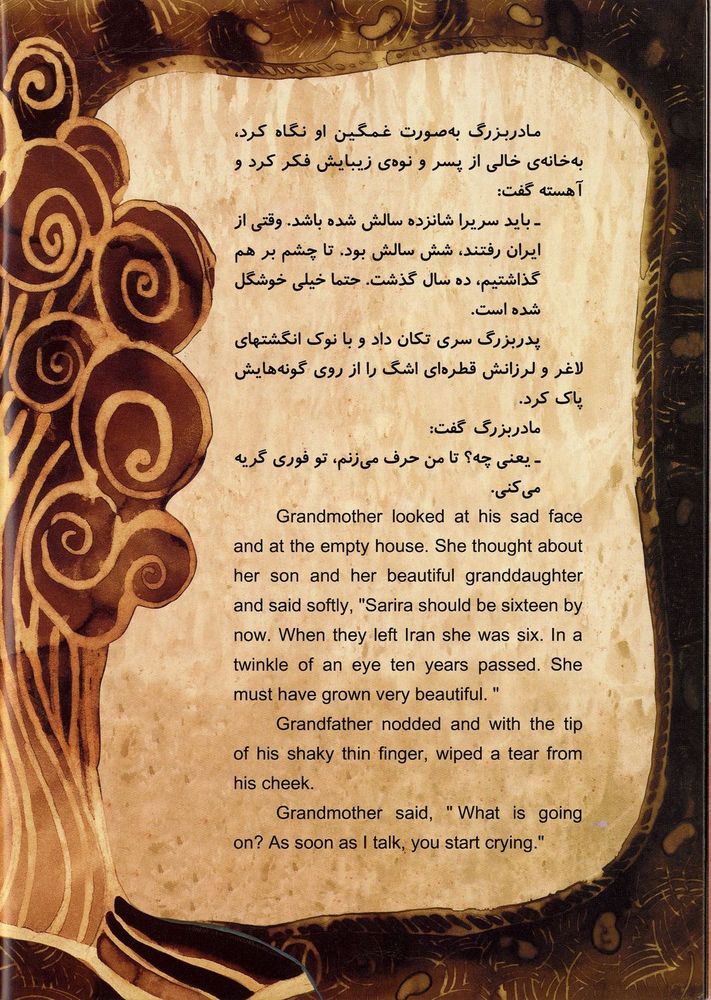 مادربزرگ به‌صورت غمگین او نگاه کرد،
به‌خانه‌ی خالی از پسر و نوه‌ی زیبایش فکر کرد و
آهسته گفت:
ـ باید سریرا شانزده سالش شده باشد. وقتی از
ایران رفتند، شش سالش بود. تا چشم بر هم
گذاشتیم، ده سال گذشت. حتما خیلی خوشگل
شده است.
پدربزرگ سری تکان داد و با نوک انگشتهای
لاغر و لرزانش قطره‌ای اشگ را از روی گونه‌هایش
پاک کرد.
مادربزرگ گفت:
ـ یعنی چه؟ تا من حرف می‌زنم، تو فوری گریه
می‌کنی.
Grandmother looked at his sad face
and at the empty house. She thought about
her son and her beautiful granddaughter
and said softly, "Sarira should be sixteen by
now. When they left Iran she was six. In a
twinkle of an eye ten years passed. She
must have grown very beautiful. "
Grandfather nodded and with the tip
of his shaky thin finger, wiped a tear from
his cheek.
Grandmother said, " What is going
on? As soon as I talk, you start crying."